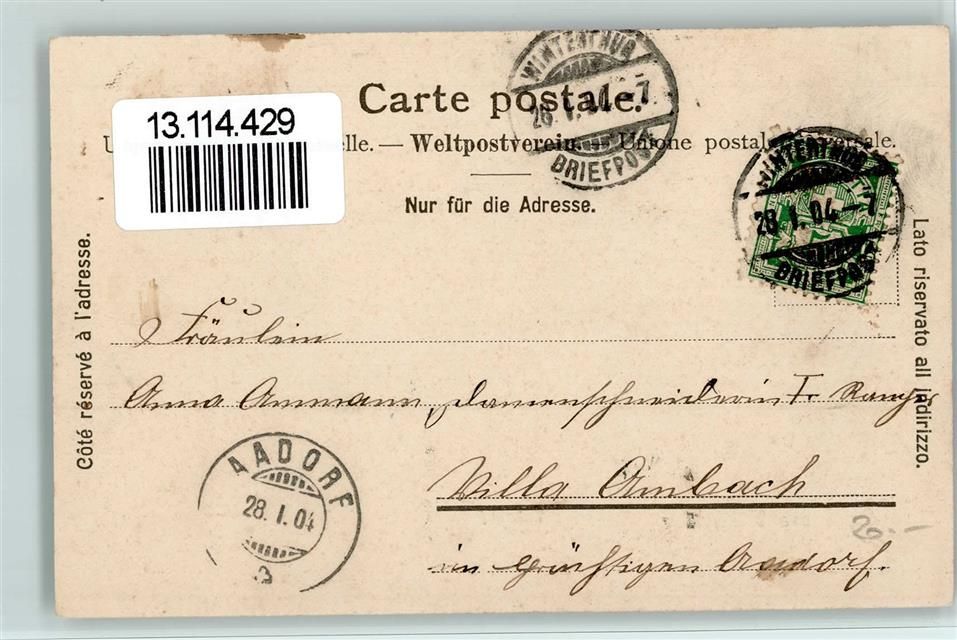 13.114.429
Carte postale.
elle. — Weltpostverein. — Unione postale
Nur für die Adresse.
Côté réservé à l'adresse.
Lato riservato all indirizzo.
WINTERTHUR
BRIEFPOST
WINTERTHUR
28. I. 04 – 7
BRIEFPOST
Fräulein
Anna Ammann, Damenschneiderin I. Ranges
Villa Ambach
in Aadorf.
AADORF
28. I. 04
20.-